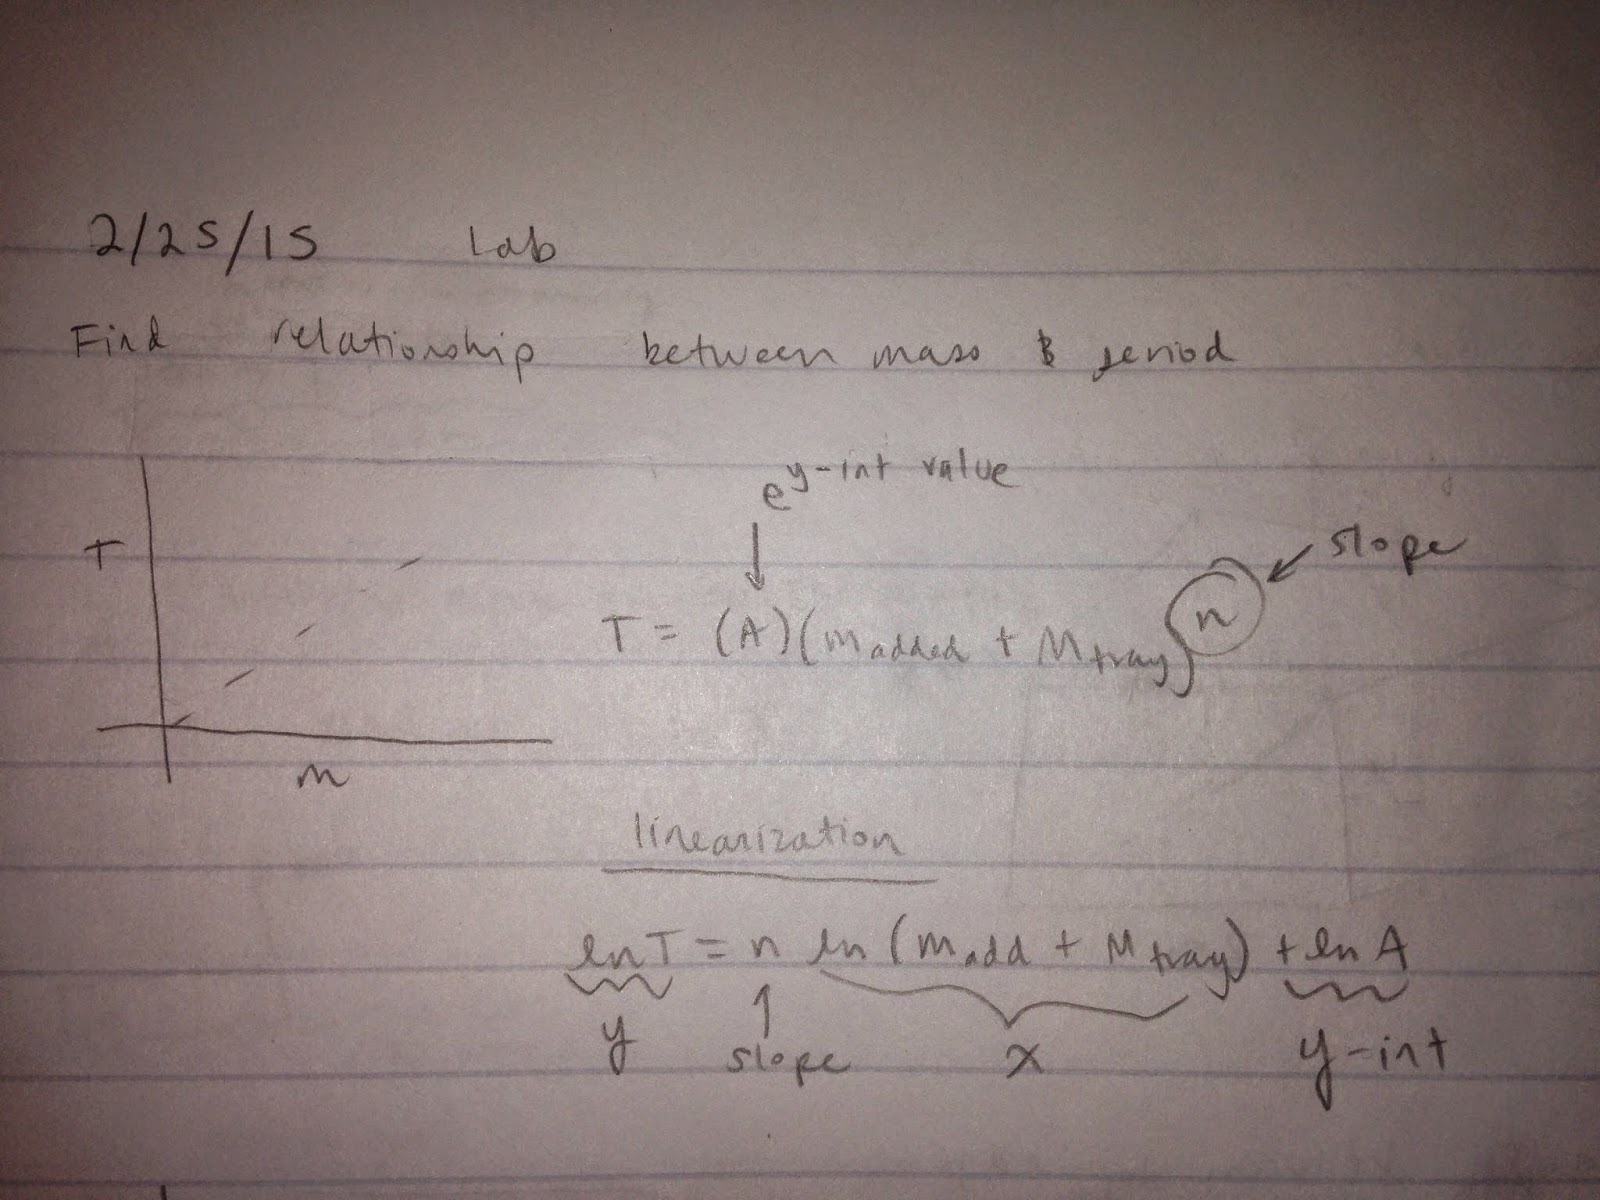 2/25/15 Lab
Find relationship between mass & period
e^y-int value
T
slope
T = (A)(m_added + M_tray)^n
m
linearization
ln T = n ln (m_add + M_tray) + ln A
y slope x y-int